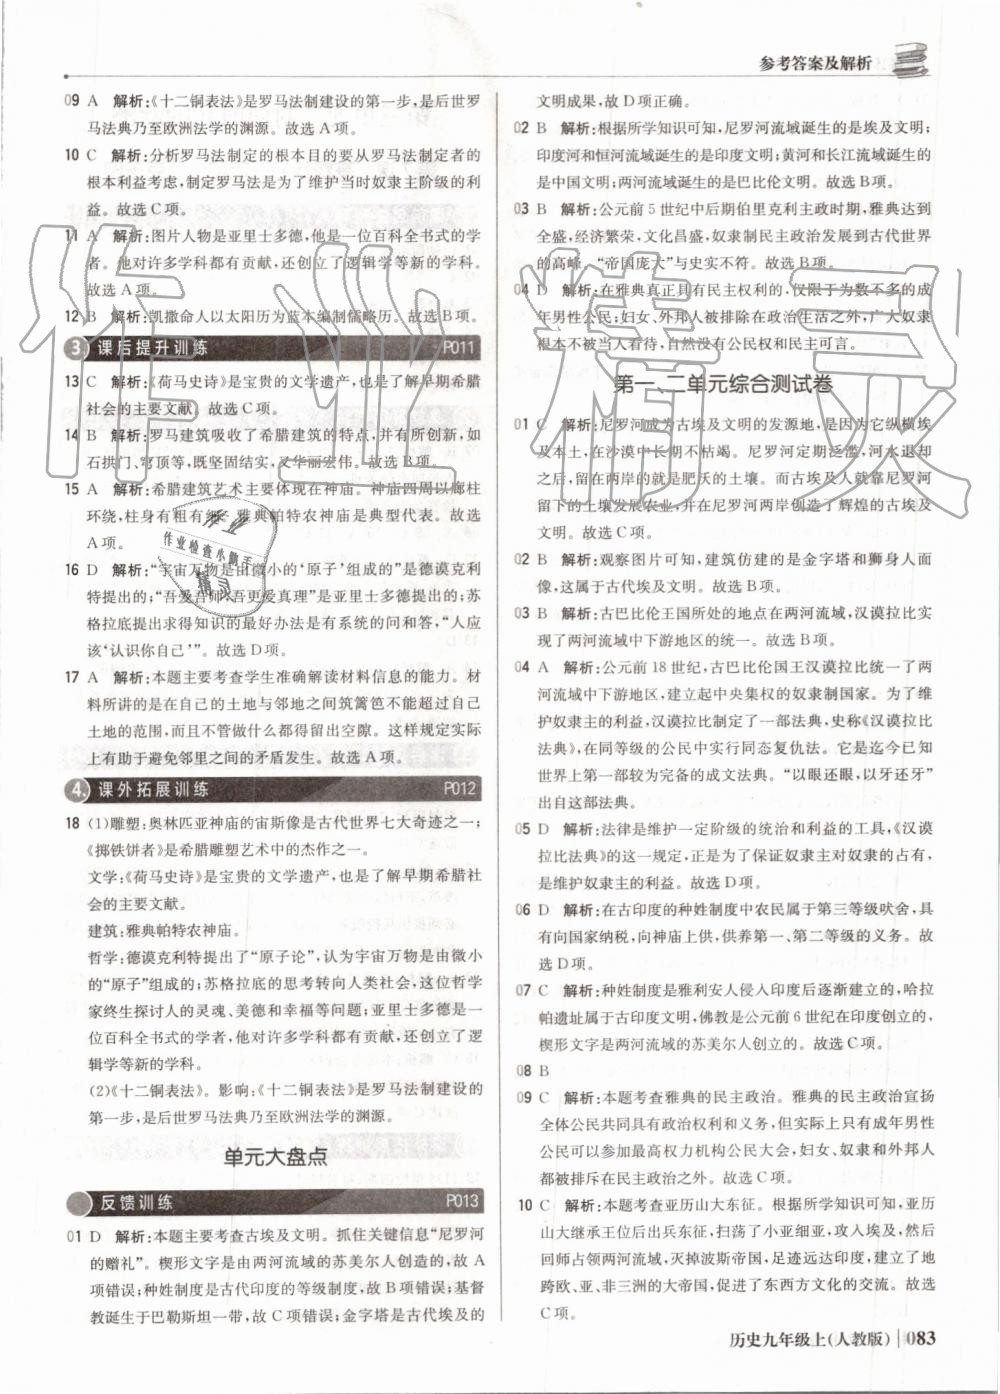 参考答案及解析
09 A 解析:《十二铜表法》是罗马法制建设的第一步,是后世罗
马法典乃至欧洲法学的渊源。故选A项。
10 C 解析:分析罗马法制定的根本目的要从罗马法制定者的
根本利益考虑,制定罗马法是为了维护当时奴隶主阶级的利
益。故选C项。
11 A 解析:图片人物是亚里士多德,他是一位百科全书式的学
者。他对许多学科都有贡献,还创立了逻辑学等新的学科。
故选A项。
12 B 解析:凯撒命人以太阳历为蓝本编制儒略历。故选B项。
3. 课后提升训练 P011
13 C 解析:《荷马史诗》是宝贵的文学遗产,也是了解早期希腊
社会的主要文献。故选C项。
14 B 解析:罗马建筑吸收了希腊建筑的特点,并有所创新,如
石拱门、穹顶等,既坚固结实,又华丽宏伟。故选B项。
15 A 解析:希腊建筑艺术主要体现在神庙。神庙四周以廊柱
环绕,柱身有粗有细。雅典帕特农神庙是典型代表。故选
A项。
16 D 解析:“宇宙万物是由微小的‘原子’组成的”是德谟克利
特提出的;“吾爱吾师,吾更爱真理”是亚里士多德提出的;苏
格拉底提出求得知识的最好办法是有系统的问和答,“人应
该‘认识你自己’”。故选D项。
17 A 解析:本题主要考查学生准确解读材料信息的能力。材
料所讲的是在自己的土地与邻地之间筑篱笆不能超过自己
土地的范围,而且不管做什么都得留出空隙。这样规定实际
上有助于避免邻里之间的矛盾发生。故选A项。
4. 课外拓展训练 P012
18 (1)雕塑:奥林匹亚神庙的宙斯像是古代世界七大奇迹之一;
《掷铁饼者》是希腊雕塑艺术中的杰作之一。
文学:《荷马史诗》是宝贵的文学遗产,也是了解早期希腊社
会的主要文献。
建筑:雅典帕特农神庙。
哲学:德谟克利特提出了“原子论”,认为宇宙万物是由微小
的“原子”组成的;苏格拉底的思考转向人类社会,这位哲学
家终生探讨人的灵魂、美德和幸福等问题;亚里士多德是一
位百科全书式的学者,他对许多学科都有贡献,还创立了逻
辑学等新的学科。
(2)《十二铜表法》。影响:《十二铜表法》是罗马法制建设的
第一步,是后世罗马法典乃至欧洲法学的渊源。
单元大盘点
反馈训练 P013
01 D 解析:本题主要考查古埃及文明。抓住关键信息“尼罗河
的赠礼”。楔形文字是由两河流域的苏美尔人创造的,故A
项错误;种姓制度是古代印度的等级制度,故B项错误;基督
教诞生于巴勒斯坦一带,故C项错误;金字塔是古代埃及的
文明成果,故D项正确。
02 B 解析:根据所学知识可知,尼罗河流域诞生的是埃及文明;
印度河和恒河流域诞生的是印度文明;黄河和长江流域诞生的
是中国文明;两河流域诞生的是巴比伦文明。故选B项。
03 B 解析:公元前5世纪中后期伯里克利主政时期,雅典达到
全盛,经济繁荣,文化昌盛,奴隶制民主政治发展到古代世界
的高峰。“帝国庞大”与史实不符。故选B项。
04 D 解析:在雅典真正具有民主权利的,仅限于为数不多的成
年男性公民;妇女、外邦人被排除在政治生活之外,广大奴隶
根本不被当人看待,自然没有公民权和民主可言。
第一、二单元综合测试卷
01 C 解析:尼罗河成为古埃及文明的发源地,是因为它纵横埃
及本土,在沙漠中长期不枯竭。尼罗河定期泛滥,河水退却
之后,留在两岸的就是肥沃的土壤。而古埃及人就靠尼罗河
留下的土壤发展农业,并在尼罗河两岸创造了辉煌的古埃及
文明。故选C项。
02 B 解析:观察图片可知,建筑仿建的是金字塔和狮身人面
像,这属于古代埃及文明。故选B项。
03 B 解析:古巴比伦王国所处的地点在两河流域,汉谟拉比实
现了两河流域中下游地区的统一。故选B项。
04 A 解析:公元前18世纪,古巴比伦国王汉谟拉比统一了两
河流域中下游地区,建立起中央集权的奴隶制国家。为了维
护奴隶主的利益,汉谟拉比制定了一部法典,史称《汉谟拉比
法典》,在同等级的公民中实行同态复仇法。它是迄今已知
世界上第一部较为完备的成文法典。“以眼还眼,以牙还牙”
出自这部法典。
05 D 解析:法律是维护一定阶级的统治和利益的工具,《汉谟
拉比法典》的这一规定,正是为了保证奴隶主对奴隶的占有,
是维护奴隶主的利益。故选D项。
06 D 解析:在古印度的种姓制度中农民属于第三等级吠舍,具
有向国家纳税,向神庙上供,供养第一、第二等级的义务。故
选D项。
07 C 解析:种姓制度是雅利安人侵入印度后逐渐建立的,哈拉
帕遗址属于古印度文明,佛教是公元前6世纪在印度创立的,
楔形文字是两河流域的苏美尔人创立的。故选C项。
08 B
09 C 解析:本题考查雅典的民主政治。雅典的民主政治宣扬
全体公民共同具有政治权利和义务,但实际上只有成年男性
公民可以参加最高权力机构公民大会,妇女和外邦人、奴隶
都被排斥在民主政治之外。故选C项。
10 C 解析:本题考查亚历山大东征。根据所学知识可知,亚历
山大继承王位后出兵东征,扫荡了小亚细亚,攻入埃及,然后
回师占领两河流域,灭掉波斯帝国,足迹远达印度,建立了地
跨欧、亚、非三洲的大帝国,促进了东西方文化的交流。故选
C项。
历史九年级上(人教版) 083
作业精灵
作业
作业检查小帮手
精灵